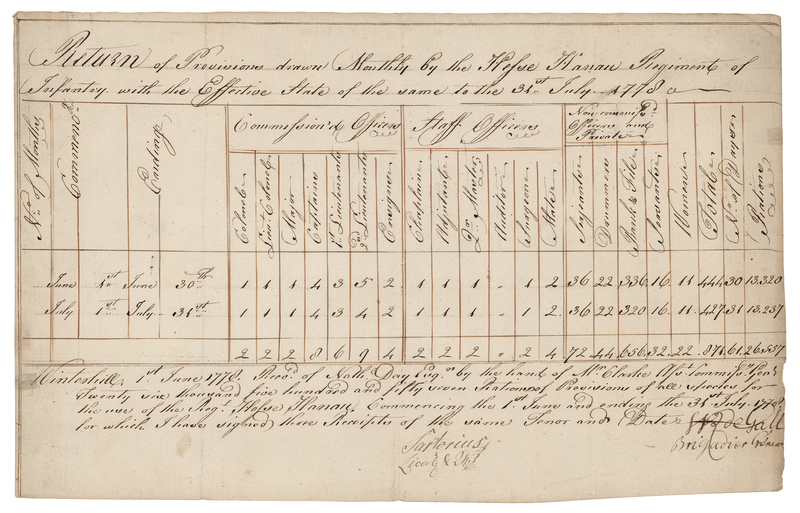 Return of Provisions drawn Monthly by the Hesse Hanau Regiment of
Infantry with the Effective State of the same to the 31st July 1778
Commission'd Officers Staff Officers Non commiss'd Officers and Privates
No. of Months Commenc'g Ending Colonel Lieut. Colonel Major Captains 1st Lieutenants 2nd Lieutenants Ensigns Chaplain Adjutant Qr. Master Auditor Surgeons Mates Serjeants Drummers Rank & File Servants Womens Total No. of Days Rations
June 1st June 30th 1 1 1 4 3 5 2 1 1 1 " 1 2 36 22 336 16 11 444 30 13,320
July 1st July 31st 1 1 1 4 3 4 2 1 1 1 " 1 2 36 22 320 16 11 427 31 13,237
2 2 2 8 6 9 4 2 2 2 " 2 4 72 44 656 32 22 871 61 26,557
Winterhill, 1st June 1778. Receiv'd of Nath. Day Esqr. by the hand of Mr. Clarke
Twenty six thousand five hundred and fifty seven Rations of Provisions of all species for
the use of the Reg. Hesse Hanau, Commencing the 1st June and ending the 31st July 1778
for which I have signed three Receipts of the same Tenor and Date
de Gall
Sartorius Brigadier General
Lieut. &